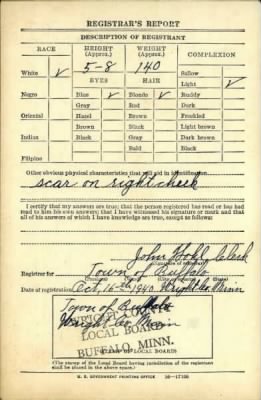 REGISTRAR'S REPORT
DESCRIPTION OF REGISTRANT
RACE HEIGHT (Approx.) WEIGHT (Approx.) COMPLEXION
5-8 140 Sallow
White ✓ EYES HAIR Light ✓
Negro Blue ✓ Blonde ✓ Ruddy
Gray Red Dark
Oriental Hazel Brown Freckled
Brown Black Light brown
Indian Black Gray Dark brown
Bald Black
Filipino
Other obvious physical characteristics that will aid in identification
scar on right cheek
I certify that my answers are true; that the person registered has read or has
had read to him his own answers; that I have witnessed his signature or mark and that
all of his answers of which I have knowledge are true, except as follows:
John Clerk
Registrar for Town of Buffalo
Date of registration Oct. 16th 1940 Wright Co. Minn
Town of Buffalo
Wright Co Minn
LOCAL BOARD
BUFFALO, MINN.
(STAMP OF LOCAL BOARD)
(The stamp of the Local Board having jurisdiction of the registrant
shall be placed in the above space.)
U. S. GOVERNMENT PRINTING OFFICE 16-17105